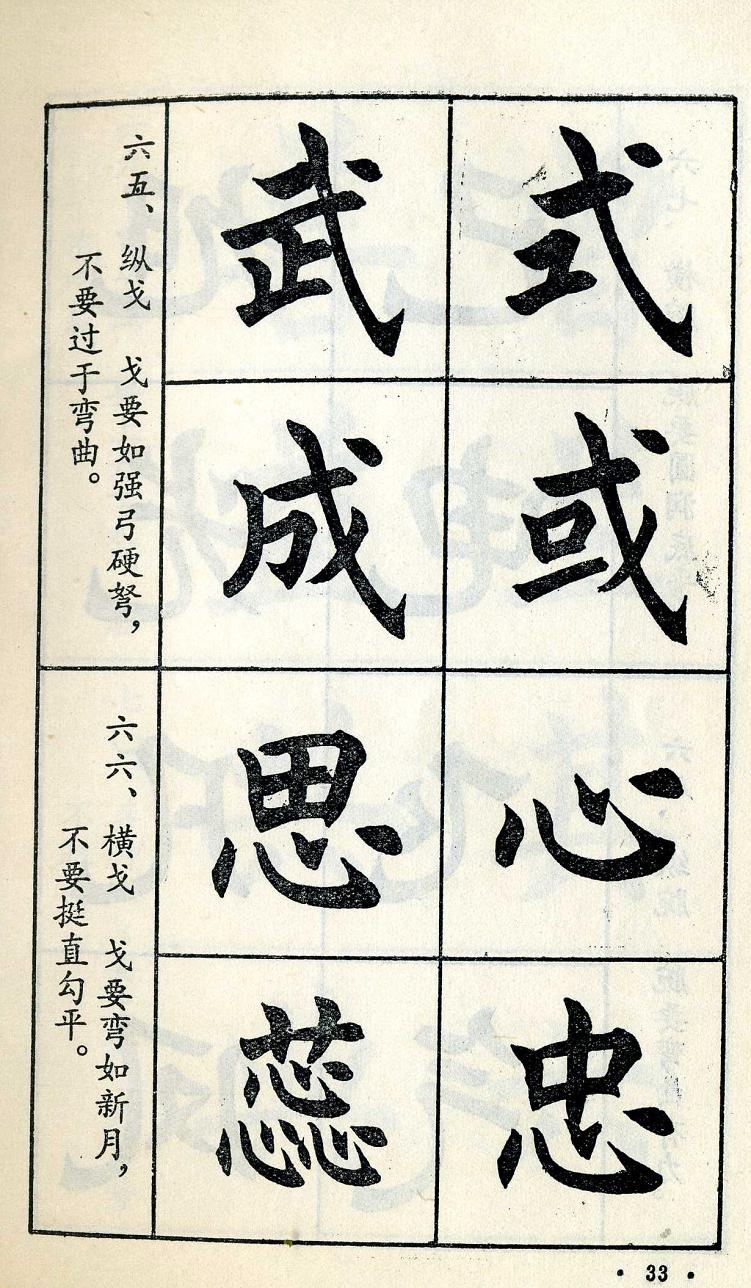 式或
武成
六五、纵戈 戈要如强弓硬弩，
不要过于弯曲。
心忠
思蕊
六六、横戈 戈要弯如新月，
不要挺直勾平。
· 33 ·